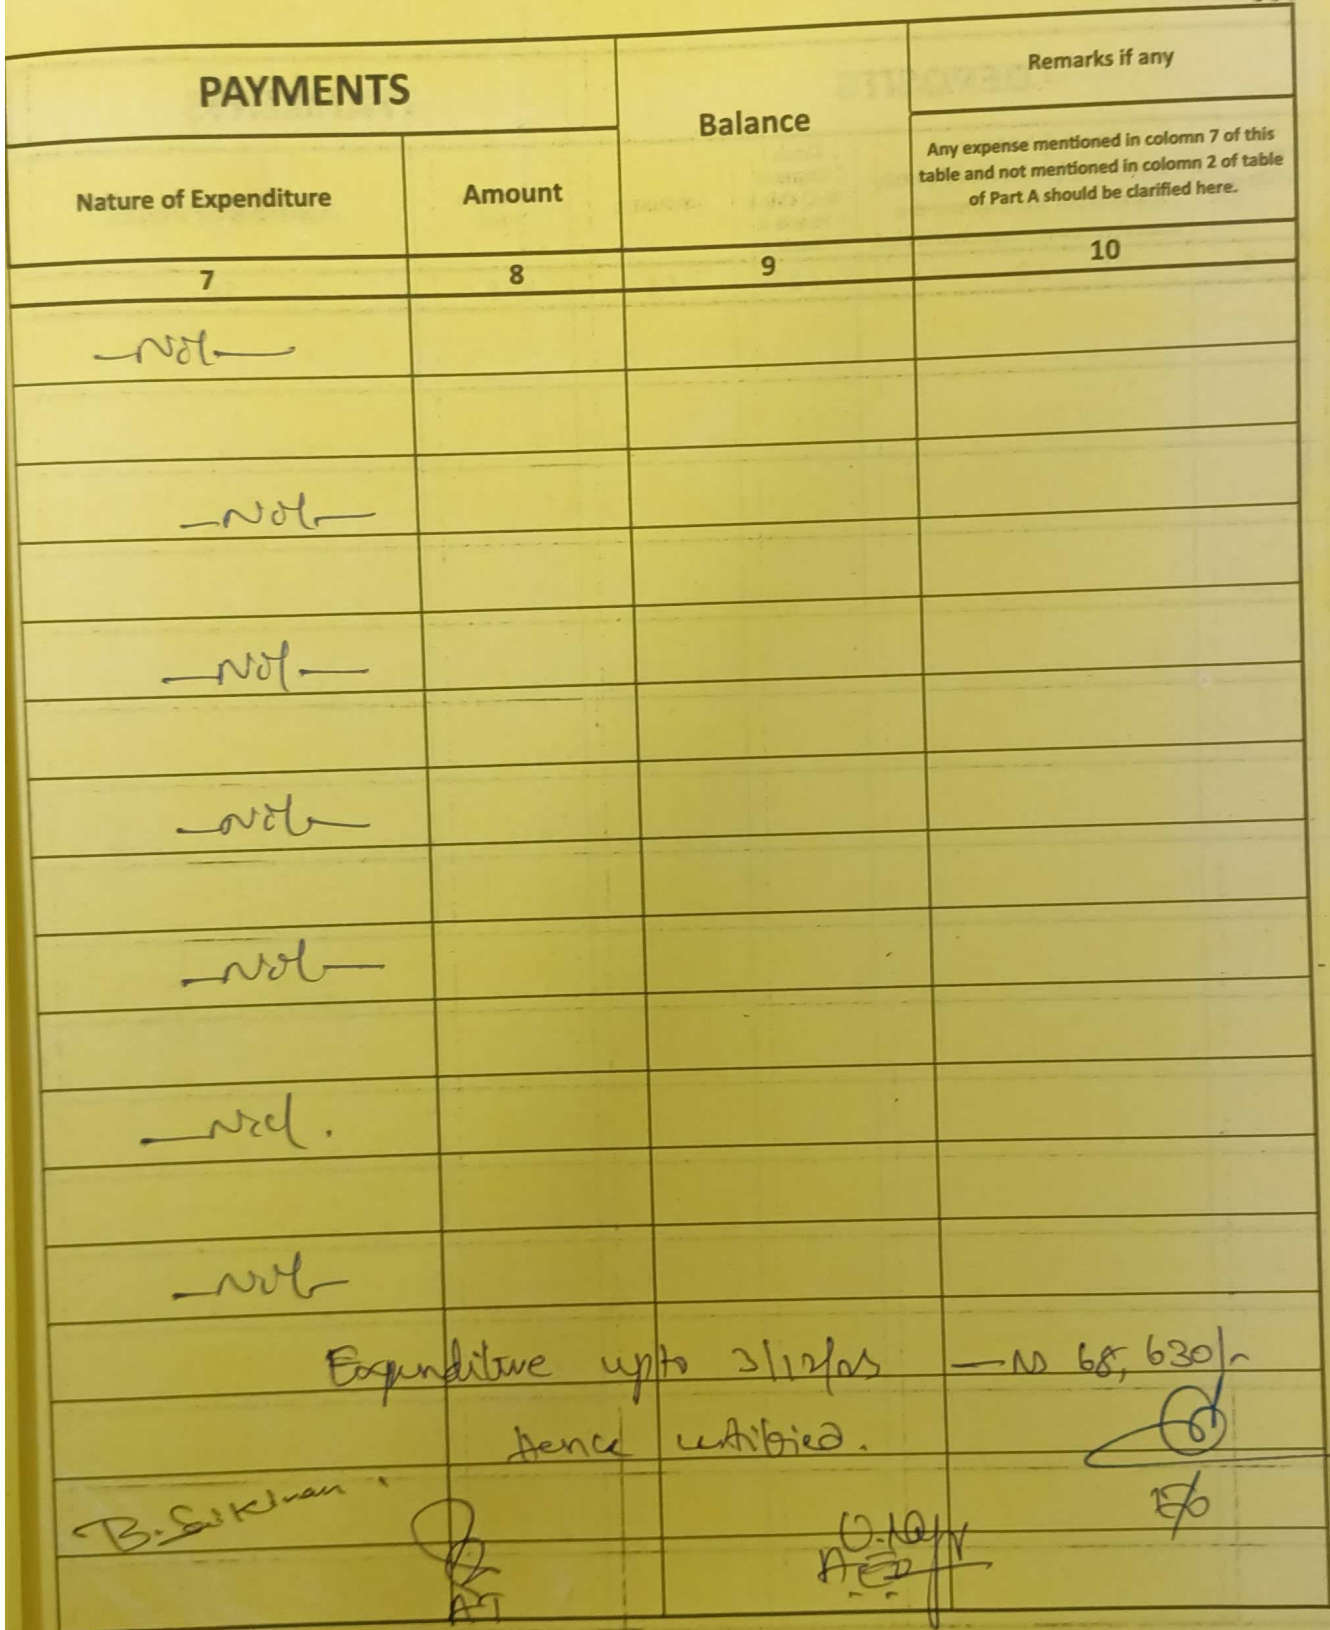 PAYMENTS
Balance
Remarks if any
Nature of Expenditure
Amount
Any expense mentioned in colomn 7 of this
table and not mentioned in colomn 2 of table
of Part A should be clarified here.
7 8 9 10
—Nil—
—Nil—
—Nil—
—Nil—
—Nil—
—Nil.
—Nil—
Expenditure upto 3/12/23 — 68,630/-
Hence certified.
AT